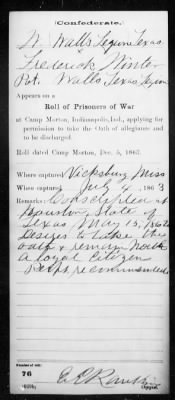 (Confederate.)
W Walls Legion Texas
Frederick Winter
Pvt. Walls Texas Legion
Appears on a
Roll of Prisoners of War
at Camp Morton, Indianapolis, Ind., applying for
permission to take the Oath of allegiance and
to be discharged.
Roll dated Camp Morton, Dec. 5, 1863.
Where captured Vicksburg Miss
When captured July 4, 1863
Remarks: Conscripted at
Houston, State of
Texas May 15, 1862
Desires to take the
oath & remain North
a loyal Citizen
recommended
Number of roll:
76
Copyist.